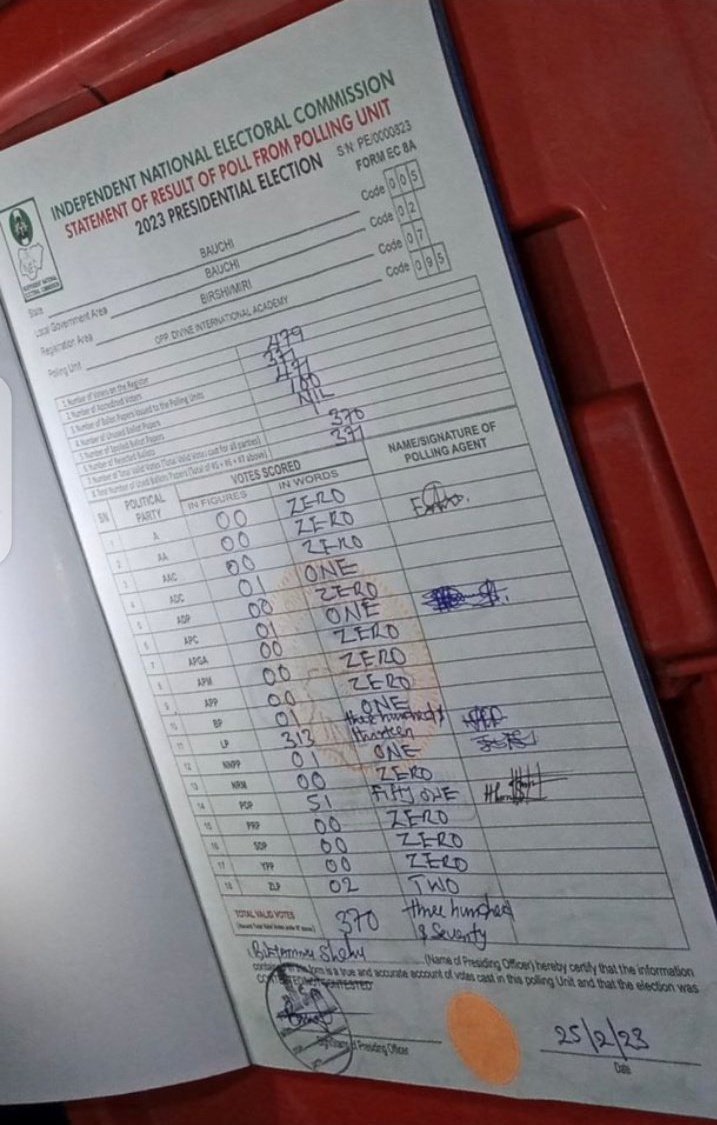 INDEPENDENT NATIONAL ELECTORAL COMMISSION
STATEMENT OF RESULT OF POLL FROM POLLING UNIT
2023 PRESIDENTIAL ELECTION
S/N: PE/0000823
FORM EC 8A
State BAUCHI Code 005
Local Government Area BAUCHI Code 02
Registration Area BIRSHI/MIRI Code 07
Polling Unit OPP. DIVINE INTERNATIONAL ACADEMY Code 095
1. Number of Voters on the Register 479
2. Number of Accredited Voters 371
3. Number of Ballot Papers Issued to the Polling Units 471
4. Number of Unused Ballot Papers 100
5. Number of Spoiled Ballot Papers NIL
6. Number of Rejected Ballots 1
7. Number of Total Valid Votes (Total Valid Votes cast for all parties) 370
8. Total Number of Used Ballot Papers (Total of #5 + #6 + #7 above) 371
SN POLITICAL PARTY VOTES SCORED NAME/SIGNATURE OF POLLING AGENT
IN FIGURES IN WORDS
1 A 00 ZERO
2 AA 00 ZERO
3 AAC 00 ZERO
4 ADC 01 ONE
5 ADP 00 ZERO
6 APC 01 ONE
7 APGA 00 ZERO
8 APM 00 ZERO
9 APP 00 ZERO
10 BP 01 ONE
11 LP 313 three hundred & thirteen
12 NNPP 01 ONE
13 NRM 00 ZERO
14 PDP 51 FIFTY ONE
15 PRP 00 ZERO
16 SDP 00 ZERO
17 YPP 00 ZERO
18 ZLP 02 TWO
TOTAL VALID VOTES 370 three hundred & Seventy
I Shehu (Name of Presiding Officer) hereby certify that the information
contained in the form is a true and accurate account of votes cast in this polling Unit and that the election was
CONTESTED/NOT CONTESTED
Signature of Presiding Officer
25/2/23
Date